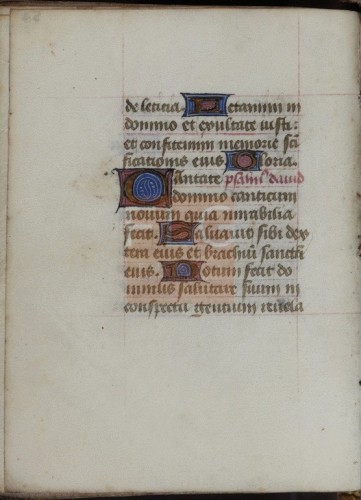 de leticia. Letamini in
domino et exultate iusti:
et confitemini memorie scī
ficationis eius Gloria.
Cantate psalm⁹ david
domino canticum
novum quia mirabilia
fecit. Salvavit sibi dex
tera eius et brachiū sanctū
eius. Notum fecit do
minus salutare suum in
conspectu gentium revela